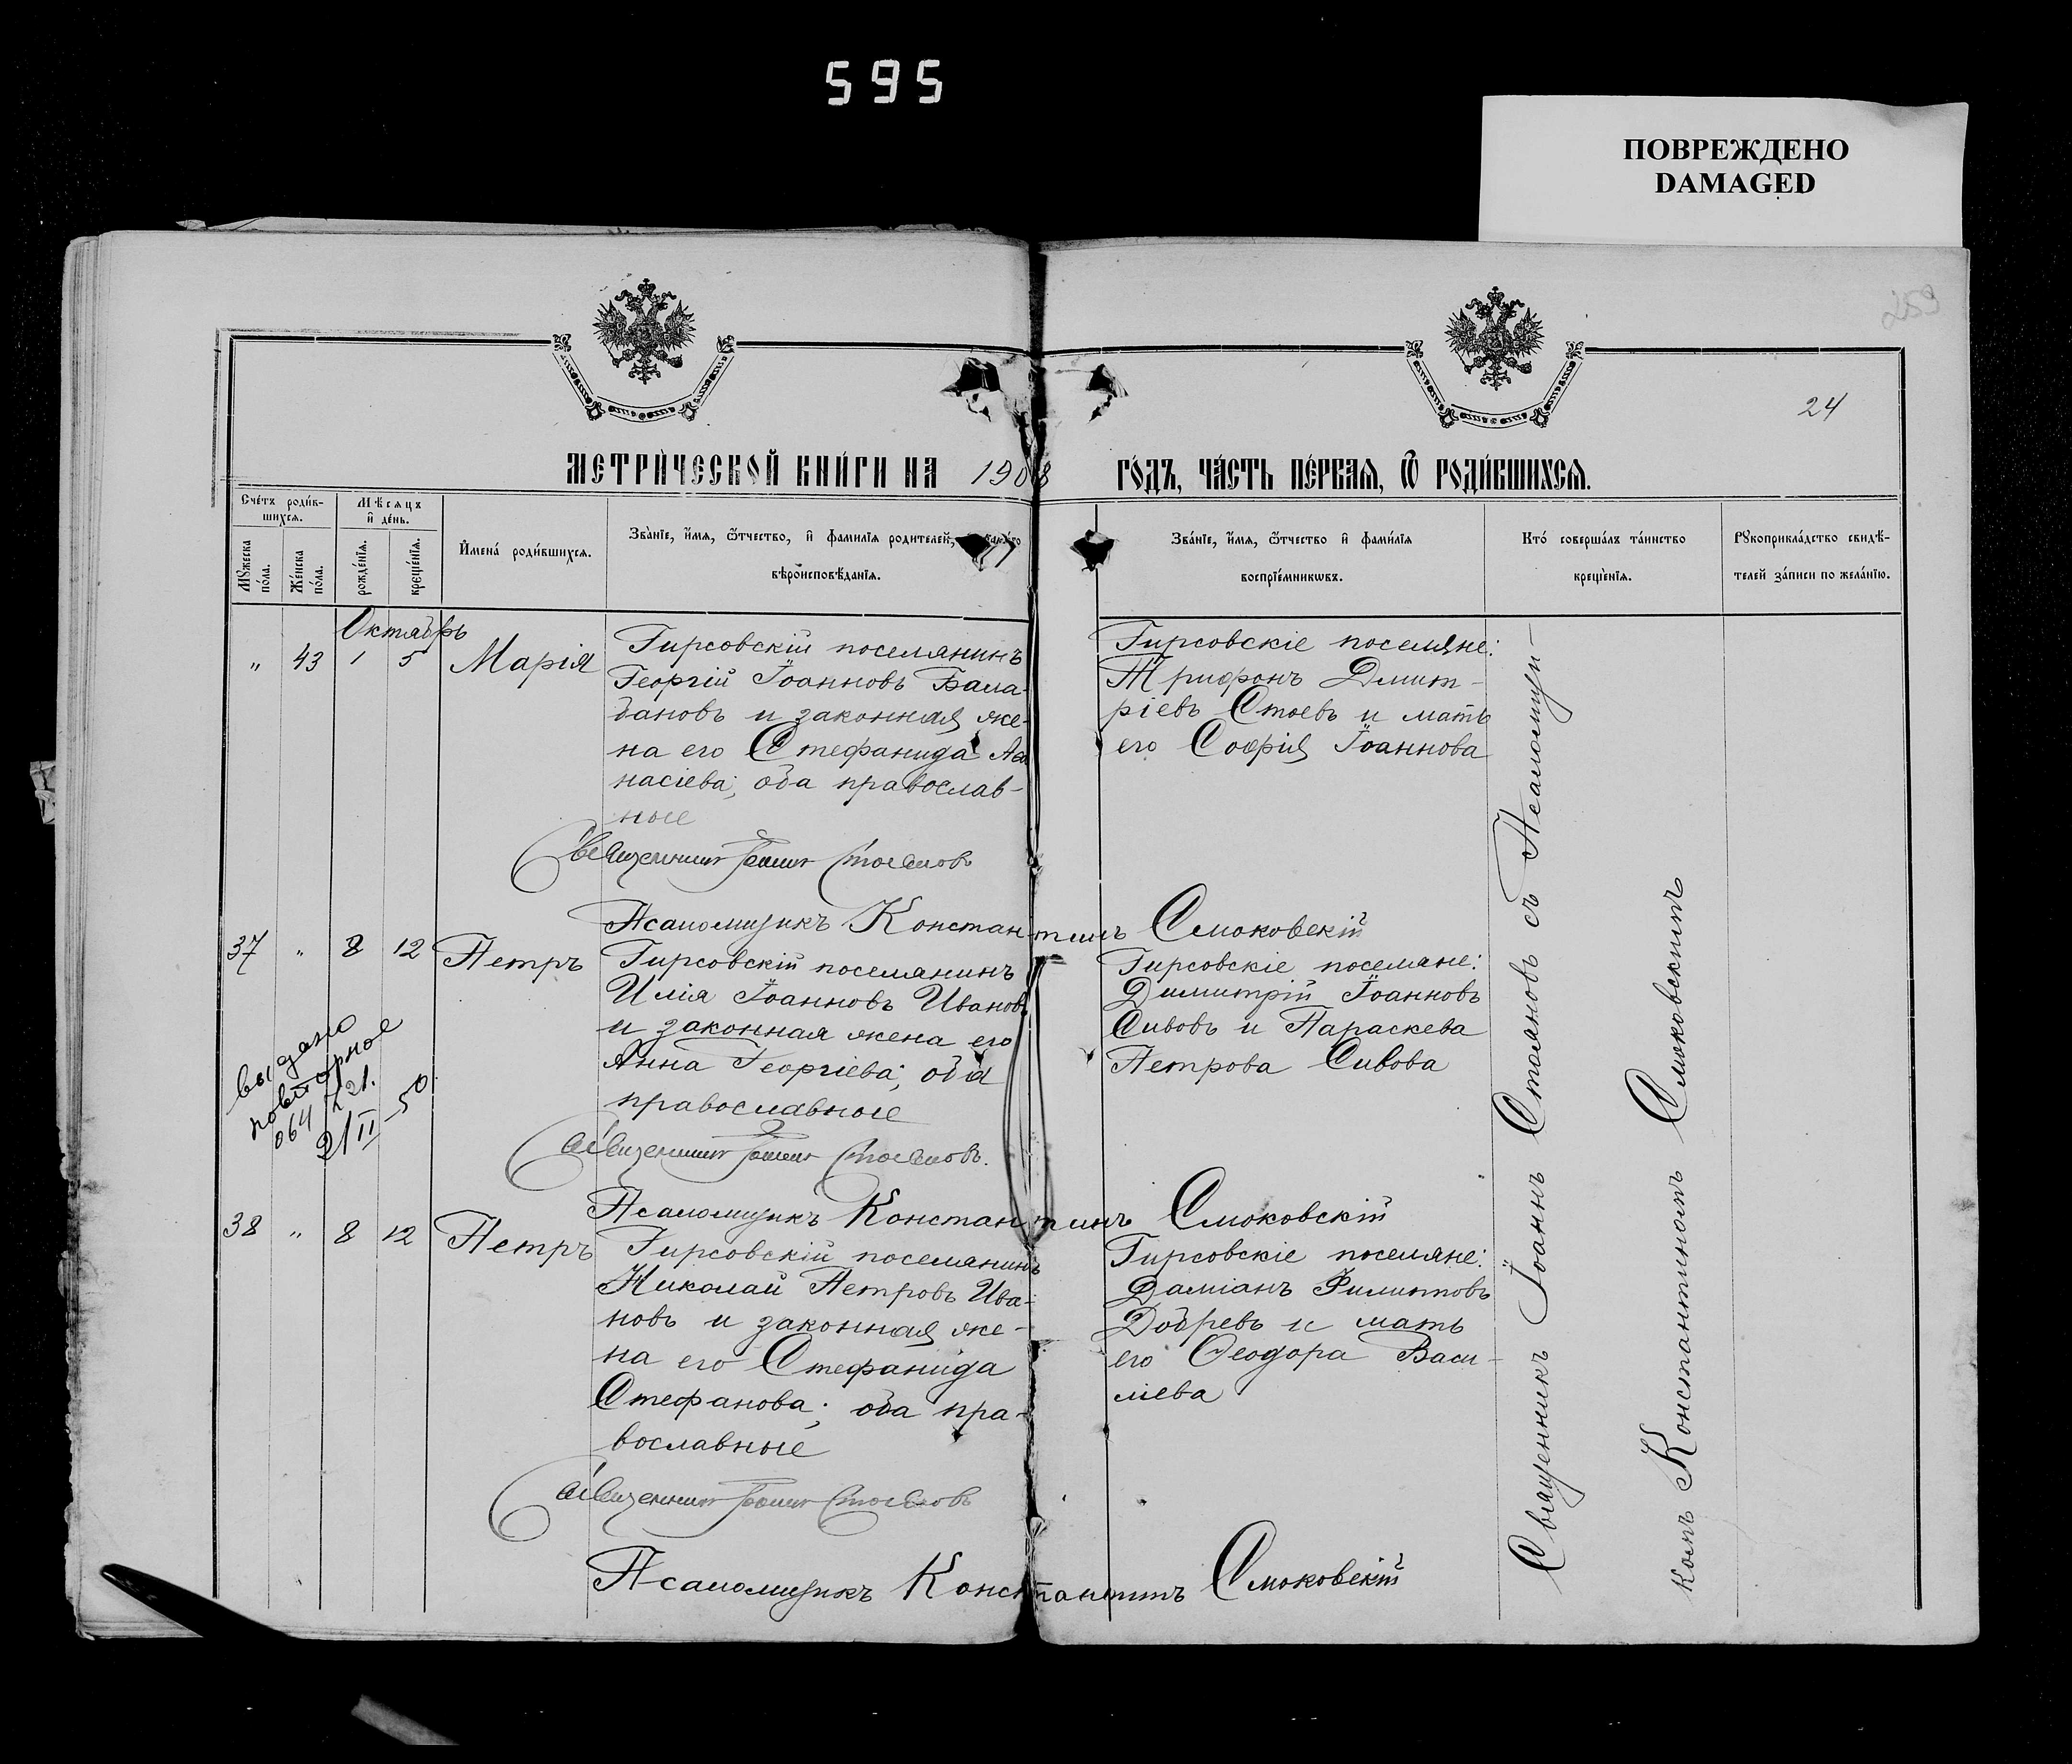 595
ПОВРЕЖДЕНО
DAMAGED
259
24
МЕТРИ́ЧЕСКОЙ КНИ́ГИ НА 1908 ГО́ДЪ, ЧА́СТЬ ПЕ́РВАЯ, Ѿ РОДИ́ВШИХСЯ.
Сче́тъ роди́в-
шихся.
Мѣ́сяцъ
и҆ де́нь.
Мꙋ́жеска
по́ла.
Же́нска
по́ла.
рожде́нїѧ.
креще́нїѧ.
И҆мена̀ роди́вшихсѧ.
Зва́нїе, и҆́мѧ, ѻ҆́тчество, и҆ фами́лїѧ роди́телей,
вѣроисповѣ́данїѧ.
Зва́нїе, и҆́мѧ, ѻ҆́тчество и҆ фами́лїѧ
воспрїе́мникѡвъ.
Кто́ соверша́лъ та́инство
креще́нїѧ.
Рꙋкоприкла́дство свидѣ́-
телей за́писи по жела́нїю.
Октябрь
„ 43 1 5 Марія
Гирсовскій поселянинъ
Георгій Іоанновъ Бала-
бановъ и законная же-
на его Стефанида Аѳа
насіева; оба православ-
ные
Священникъ Іоаннъ Стояновъ
Псаломщикъ Константинъ Смоковскій
Гирсовскіе поселяне:
Трифонъ Димит-
ріевъ Стоевъ и мать
его Софія Іоаннова
37 „ 8 12 Петръ
Гирсовскій поселянинъ
Илія Іоанновъ Ивановъ
и законная жена его
Анна Георгіева; оба
православные
Священникъ Іоаннъ Стояновъ.
Псаломщикъ Константинъ Смоковскій
Гирсовскіе поселяне:
Димитрій Іоанновъ
Сивовъ и Параскева
Петрова Сивова
выдано
повторное
064 221.
2/II-50
38 „ 8 12 Петръ
Гирсовскій поселянинъ
Николай Петровъ Ива-
новъ и законная же-
на его Стефанида
Стефанова; оба пра-
вославные
Священникъ Іоаннъ Стояновъ
Псаломщикъ Константинъ Смоковскій
Гирсовскіе поселяне:
Даміанъ Филиповъ
Добревъ и мать
его Ѳеодора Васи-
ліева
Священникъ Іоаннъ Стояновъ съ Псаломщи-
комъ Константиномъ Смоковскимъ